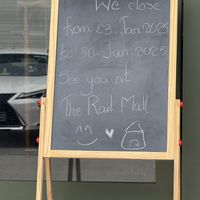 We close
from 23. Jan. 2025
to 30. Jan. 2025
See you at
The Rout Mall